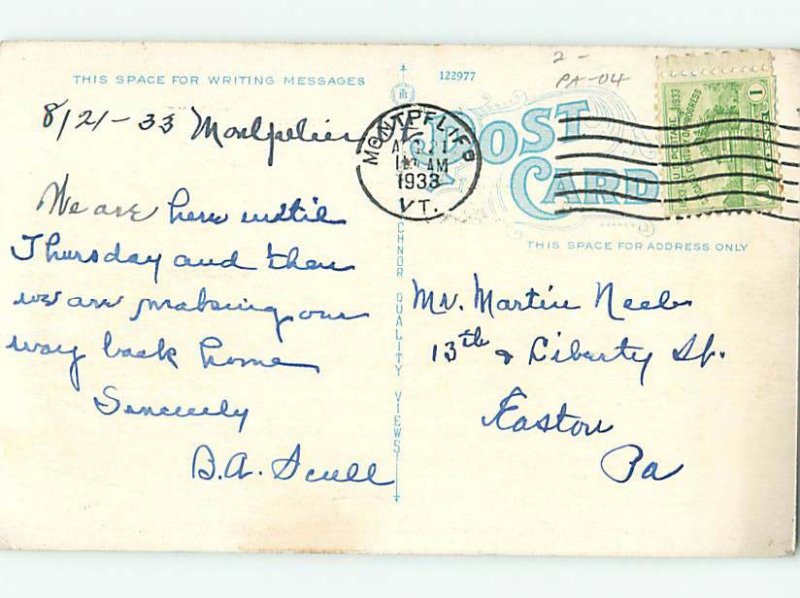 THIS SPACE FOR WRITING MESSAGES
8/21-33 Montpelier
We are here until
Thursday and then
we are making our
way back home
Sincerely
B.A. Scull
122977
2-
PA-04
MONTPELIER
AUG 21
AM
1933
VT.
POST
CARD
1
THIS SPACE FOR ADDRESS ONLY
CHNOR QUALITY VIEWS
Mr. Martin Neeb
13th & Liberty St.
Easton
Pa